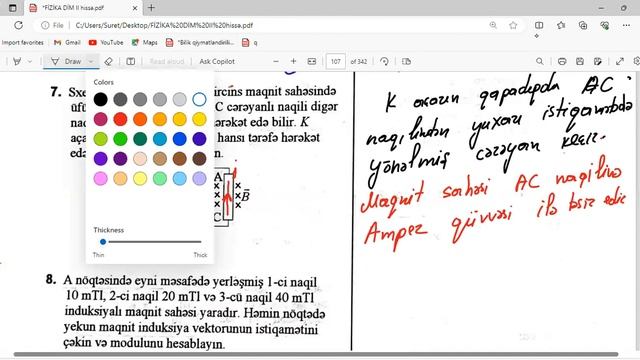 *FİZİKA DİM II hissə.pdf
File
C:/Users/Suret/Desktop/FİZİKA%20DİM%20II%20hissə.pdf
Import favorites
Gmail
YouTube
Maps
*Bilik qiymətləndirilk...
q
Draw
Read aloud
Ask Copilot
107
of 342
Colors
Thickness
Thin
Thick
7. Sxe
ircins maqnit sahəsində
üfü
C cərəyanlı naqili digər
naq
ərəkət edə bilir. K
aça
hansı tərəfə hərəkət
edə
n.
A
C
B
8. A nöqtəsində eyni məsafədə yerləşmiş 1-ci naqil
10 mTl, 2-ci naqil 20 mTl və 3-cü naqil 40 mTl
induksiyalı maqnit sahəsi yaradır. Həmin nöqtədə
yekun maqnit induksiya vektorunun istiqamətini
çəkin və modulunu hesablayın.
K açarın qapadıqda AC
naqilindən yuxarı istiqamətdə
yönəlmiş cərəyan keçir.
Maqnit sahəsi AC naqilinə
Amper qüvvəsi ilə təsir edir